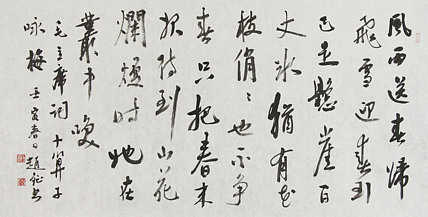 風雨送春歸
飛雪迎春到
已是懸崖百
丈冰猶有花
枝俏〻也不争
春只把春来
报待到山花
爛熳时她在
叢中咲
毛主席词卜算子
咏梅 壬寅春日趙书